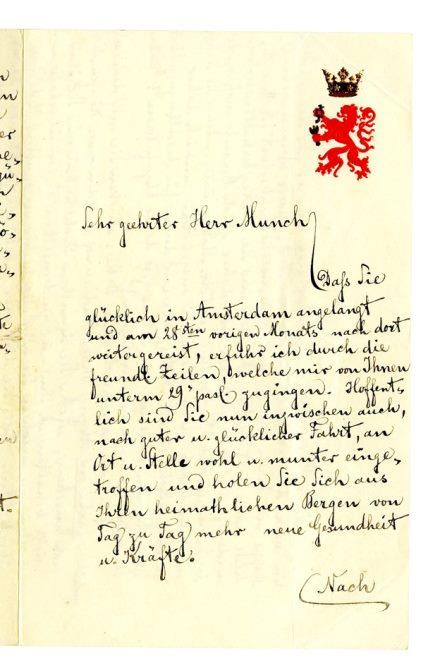 Sehr geehrter Herr Munch,
Daß Sie
glücklich in Amsterdam angelangt
und am 28sten vorigen Monats nach dort
weitergereist, erfuhr ich durch die
freundl. Zeilen, welche mir von Ihnen
unterm 29. pass. zugingen. Hoffent-
lich sind Sie nun inzwischen auch,
nach guter u. glücklicher Fahrt, an
Ort u. Stelle wohl u. munter einge-
troffen und holen Sie Sich aus
Ihren heimathlichen Bergen von
Tag zu Tag mehr neue Gesundheit
u. Kräfte!
Nach